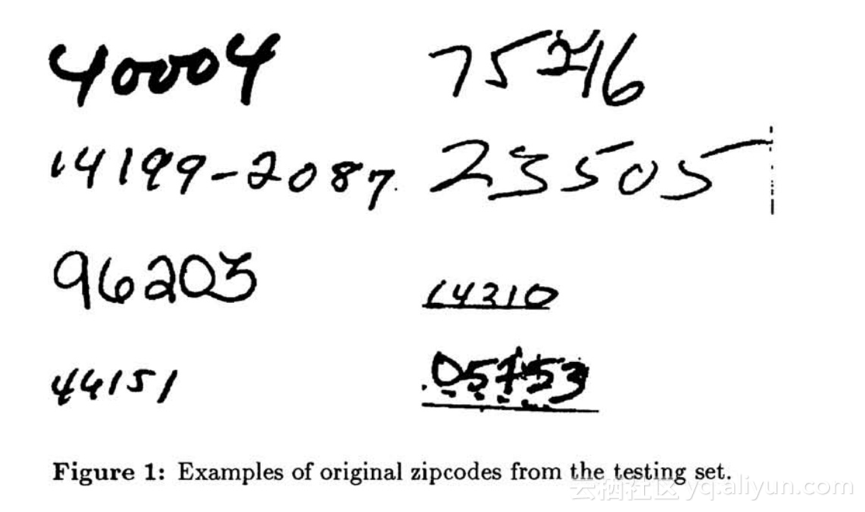 40004 75216
14199-2087 23505
96203 14310
44151 05753
Figure 1: Examples of original zipcodes from the testing set.
云栖社区 yq.aliyun.com